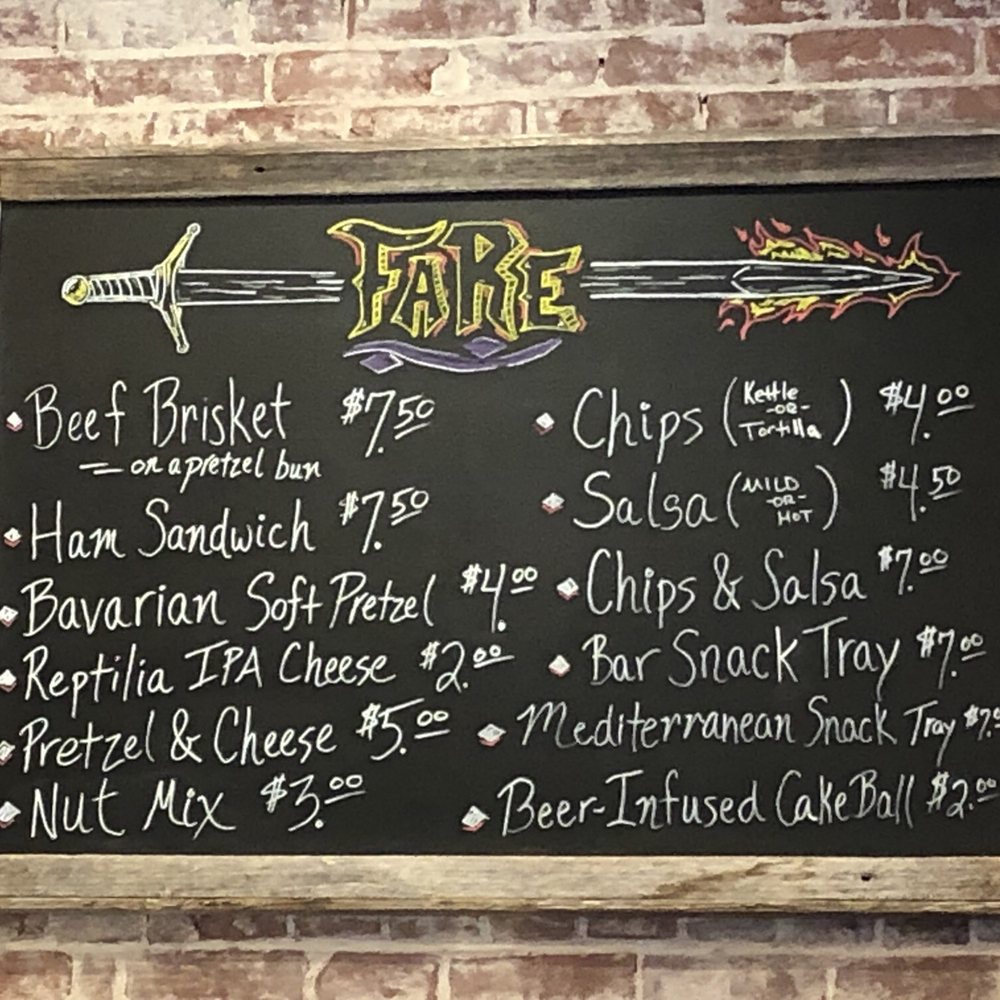 FARE
Beef Brisket $7.50
on a pretzel bun
Ham Sandwich $7.50
Bavarian Soft Pretzel $4.00
Reptilia IPA Cheese $2.00
Pretzel & Cheese $5.00
Nut Mix $3.00
Chips (Kettle -OR- Tortilla) $4.00
Salsa (MILD -OR- HOT) $4.50
Chips & Salsa $7.00
Bar Snack Tray $7.00
Mediterranean Snack Tray
Beer-Infused Cake Ball $2.00